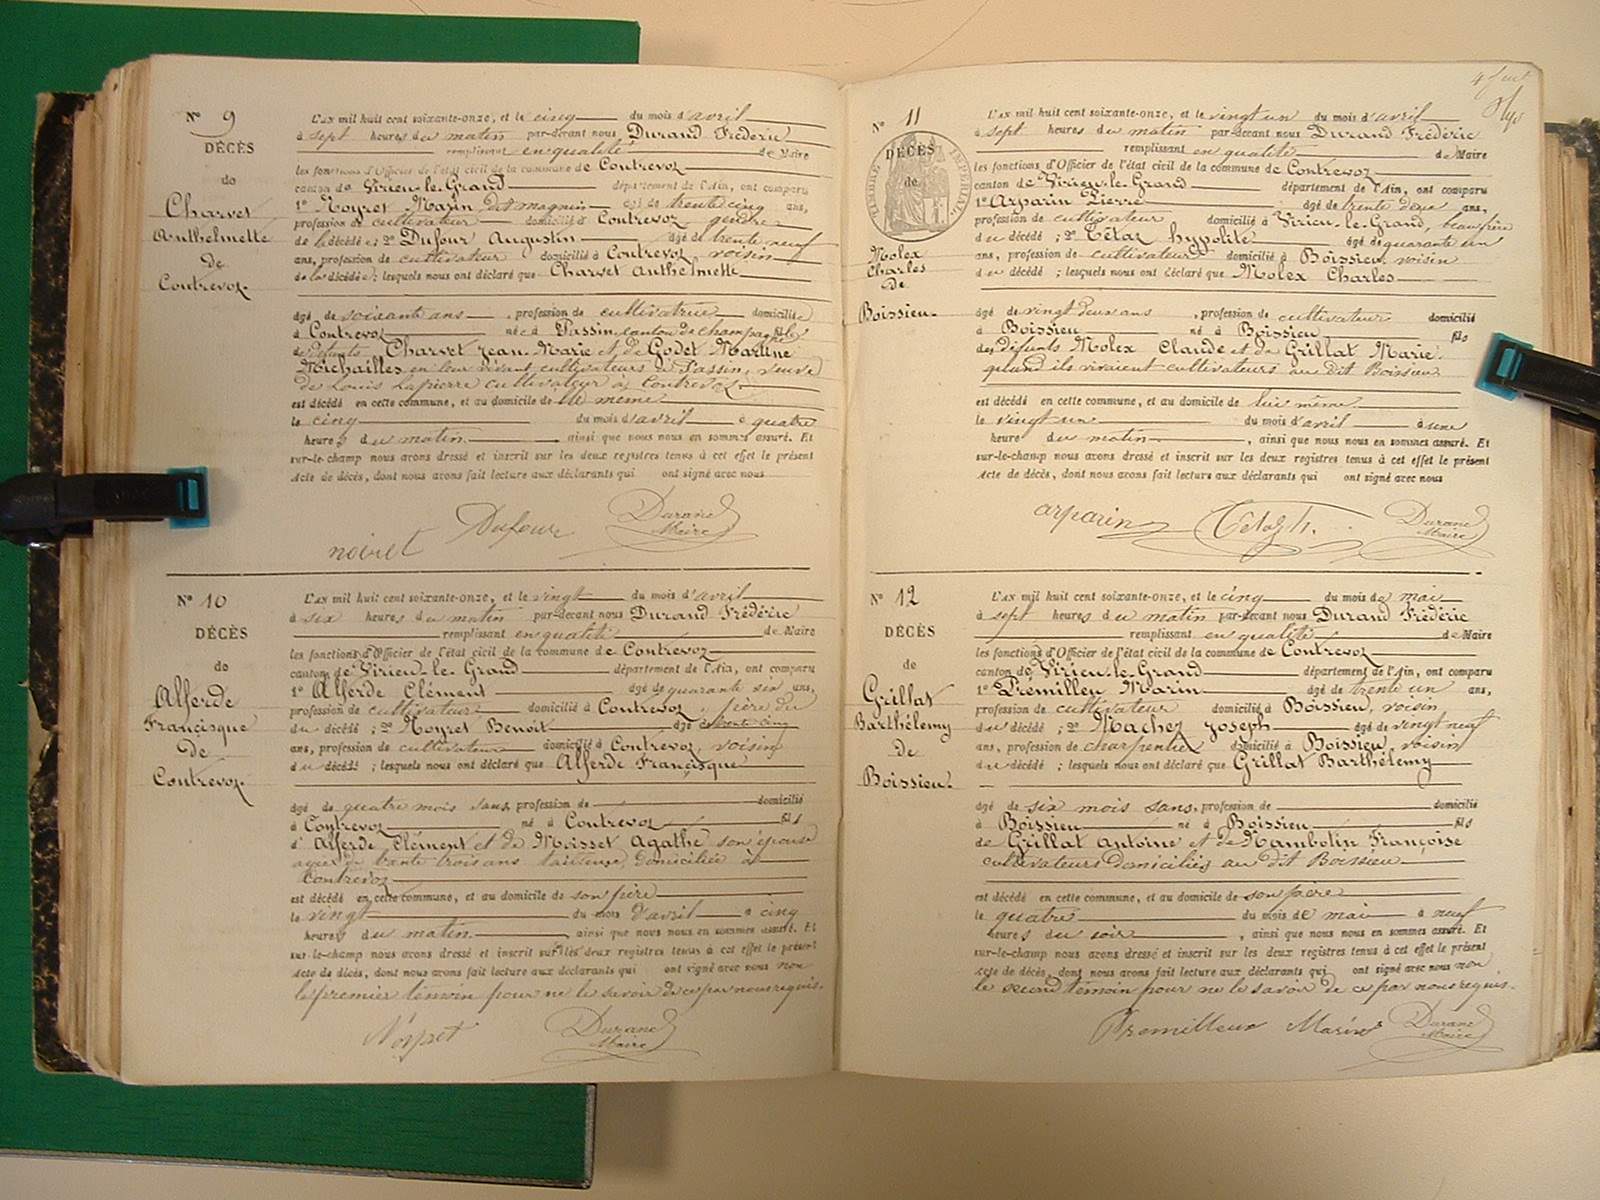 N° 9
DÉCÈS
de
Charvet
Anthelmette
de
Contrevoz.
L'AN mil huit cent soixante-onze, et le cinq du mois d'avril
à sept heures du matin par-devant nous Durand Fréderic
remplissant en qualité de Maire
les fonctions d'Officier de l'état civil de la commune de Contrevoz
canton de Virieu-le-Grand département de l'Ain, ont comparu
1° Noyret Marin dit magnin âgé de trente cinq ans,
profession de cultivateur domicilié à Contrevoz, gendre
de la décédée; 2° Dufour Augustin âgé de trente neuf
ans, profession de cultivateur domicilié à Contrevoz voisin
de la décédée; lesquels nous ont déclaré que Charvet Anthelmette
âgé de soixante ans, profession de cultivatrice domiciliée
à Contrevoz née à Passin, canton de champagne fille
de défunts Charvet Jean-Marie et de Godet Martine
Michailles en leur vivant cultivateurs à Passin, veuve
de Louis Lapierre cultivateur à Contrevoz
est décédé en cette commune, et au domicile de même
le cinq du mois d'avril à quatre
heures du matin, ainsi que nous nous en sommes assuré. Et
sur-le-champ nous avons dressé et inscrit sur les deux registres tenus à cet effet le présent
acte de décès, dont nous avons fait lecture aux déclarants qui ont signé avec nous
noiret Dufour Durand
Maire
N° 10
DÉCÈS
de
Alferde
Francisque
de
Contrevoz.
L'AN mil huit cent soixante-onze, et le vingt du mois d'avril
à six heures du matin par-devant nous Durand Frédéric
remplissant en qualité de Maire
les fonctions d'Officier de l'état civil de la commune de Contrevoz
canton de Virieu-le-Grand département de l'Ain, ont comparu
1° Alferde Clément âgé de quarante six ans,
profession de cultivateur domicilié à Contrevoz, père du
du décédé; 2° Noyret Benoit âgé de trente cinq
ans, profession de cultivateur domicilié à Contrevoz, voisin
du décédé; lesquels nous ont déclaré que Alferde Francisque
âgé de quatre mois sans profession de domicilié
à Contrevoz né à Contrevoz fils
d'Alferde Clément et de Moisset Agathe son épouse
agée de trente trois ans tailleuse, domiciliée à
Contrevoz
est décédé en cette commune, et au domicile de son père
le vingt du mois d'avril à cinq
heures du matin, ainsi que nous nous en sommes assuré. Et
sur-le-champ nous avons dressé et inscrit sur les deux registres tenus à cet effet le présent
acte de décès, dont nous avons fait lecture aux déclarants qui ont signé avec nous non
le premier témoin pour ne le savoir de ce par nous requis.
Noyret Durand
Maire
N° 11
DÉCÈS
de
TIMBRE IMPÉRIAL
Molex
Charles
de
Boissieu
L'AN mil huit cent soixante-onze, et le vingt un du mois d'avril
à sept heures du matin par-devant nous Durand Fréderic
remplissant en qualité de Maire
les fonctions d'Officier de l'état civil de la commune de Contrevoz
canton de Virieu-le-Grand département de l'Ain, ont comparu
1° Arparin Pierre âgé de trente deux ans,
profession de cultivateur domicilié à Virieu-le-Grand, beau frère
du décédé; 2° Tétaz hypolite âgé de quarante un
ans, profession de cultivateur domicilié à Boissieu, voisin
du décédé; lesquels nous ont déclaré que Molex Charles
âgé de vingt deux ans, profession de cultivateur domicilié
à Boissieu né à Boissieu fils
des défunts Molex Claude et de Grillat Marie
quand ils vivaient cultivateurs au dit Boissieu
est décédé en cette commune, et au domicile de lui même
le vingt un du mois d'avril à une
heure du matin, ainsi que nous nous en sommes assuré. Et
sur-le-champ nous avons dressé et inscrit sur les deux registres tenus à cet effet le présent
acte de décès, dont nous avons fait lecture aux déclarants qui ont signé avec nous
arparin Tetaz h. Durand
Maire
N° 12
DÉCÈS
de
Grillat
Barthélemy
de
Boissieu.
L'AN mil huit cent soixante-onze, et le cinq du mois de mai
à sept heures du matin par-devant nous Durand Frédéric
remplissant en qualité de Maire
les fonctions d'Officier de l'état civil de la commune de Contrevoz
canton de Virieu-le-Grand département de l'Ain, ont comparu
1° Premilleu Marin âgé de trente un ans,
profession de cultivateur domicilié à Boissieu, voisin
du décédé; 2° Machez Joseph âgé de vingt neuf
ans, profession de charpentier domicilié à Boissieu, voisin
du décédé; lesquels nous ont déclaré que Grillat Barthélemy
âgé de six mois sans, profession de domicilié
à Boissieu né à Boissieu fils
de Grillat Antoine et de Nambotin Françoise
cultivateurs domiciliés au dit Boissieu
est décédé en cette commune, et au domicile de son père
le quatre du mois de mai à neuf
heures du soir, ainsi que nous nous en sommes assuré. Et
sur-le-champ nous avons dressé et inscrit sur les deux registres tenus à cet effet le présent
acte de décès, dont nous avons fait lecture aux déclarants qui ont signé avec nous non
le second témoin pour ne le savoir de ce par nous requis.
Premilleux Marin Durand
Maire